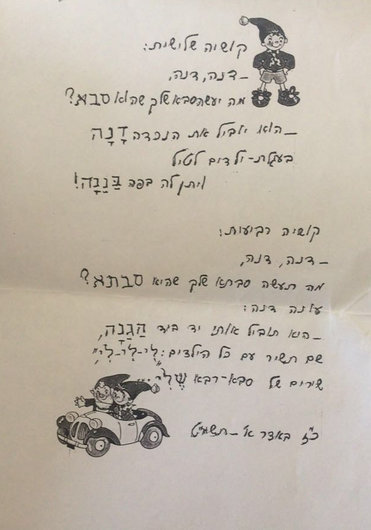 קושיה שלישית:
– דנה, דנה,
מה יעשה סבא שלך שהוא סבא?
– הוא יוביל את הנכדה דָנָה
בעגלת-ילדים לטיול
ויתן לה בפה בַּנָנָה!
קושיה רביעית:
– דנה, דנה,
מה תעשה סבתא שלך שהיא סבתא?
עונה דנה:
– היא תוביל אותי יד ביד הַגַנָה,
שם תשיר עם כל הילדים: לִי-לִי-לִי,
שירים של סבא-רבא שֶׁלִי
כ"ז באדר א' – תשע"ט